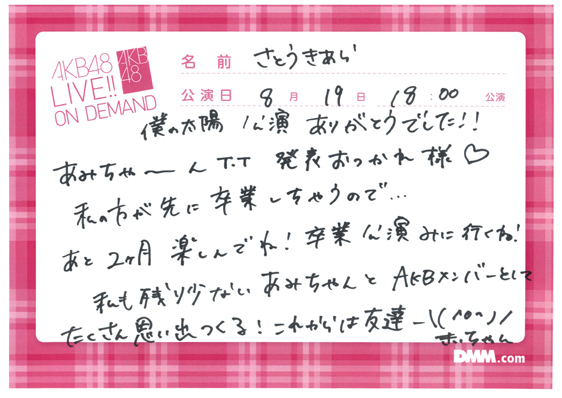 AKB48
LIVE!!
ON DEMAND
AKB
48
名前 さとうきあら
公演日 8月19日 18:00 公演
僕の太陽 公演 ありがとうでした!!
あみちゃ〜ん T.T 発表おつかれ様♡
私の方が先に卒業しちゃうので…
あと2ヶ月 楽しんでね!卒業公演みに行くね!
私も残り少ない あみちゃんとAKBメンバーとして
たくさん思い出つくる!これからは友達ー\(^o^)/
きぃちゃん
DMM.com